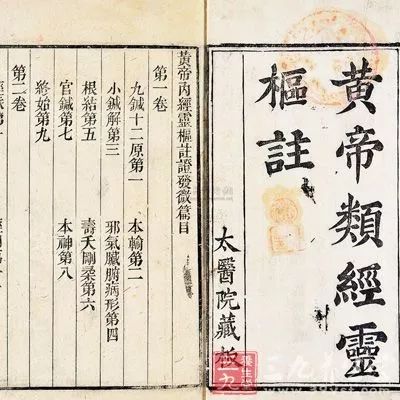 黄帝類經靈
樞註
太醫院藏板
黃帝內經靈樞註證發微篇目
第一卷
九鍼十二原第一 本輸第二
小鍼解第三 邪氣臟腑病形第四
根結第五 壽夭剛柔第六
官鍼第七 本神第八
終始第九
第二卷